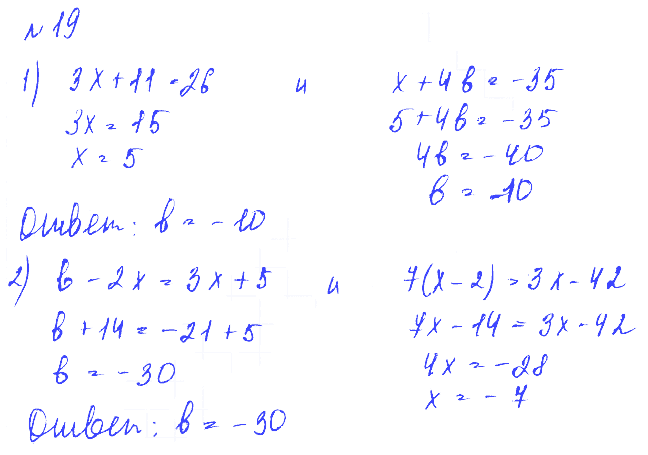 №19
1) 3x + 11 = 26 и x + 4в = -35
3x = 15 5 + 4в = -35
x = 5 4в = -40
в = -10
Ответ: в = -10
2) в - 2x = 3x + 5 и 7(x - 2) = 3x - 42
в + 14 = -21 + 5 7x - 14 = 3x - 42
в = -30 4x = -28
x = -7
Ответ: в = -30